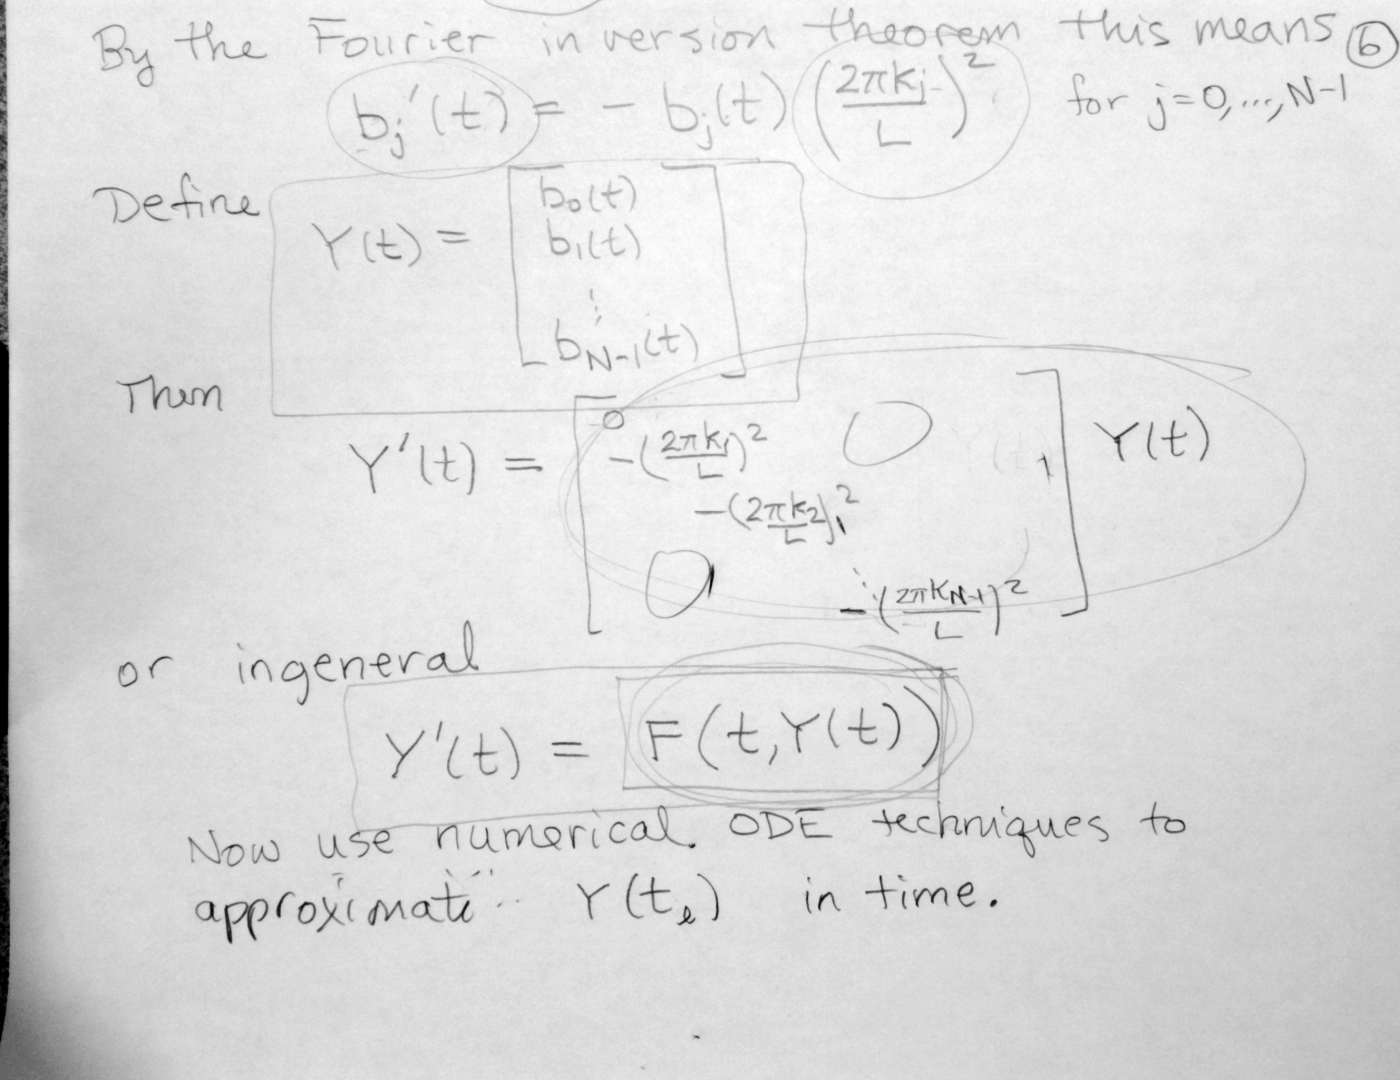 By the Fourier inversion theorem this means ⑥
bj'(t) = - bj(t) (2πkj/L)² for j=0,...,N-1
Define
Y(t) = [b₀(t)
b₁(t)
⋮
b_N-1(t)]
Then
Y'(t) = [0
-(2πk₁/L)² 0
-(2πk₂/L)²
0 ⋱
-(2πk_N-1/L)²] Y(t)
or ingeneral
Y'(t) = F(t,Y(t))
Now use numerical ODE techniques to
approximate Y(t_ℓ) in time.